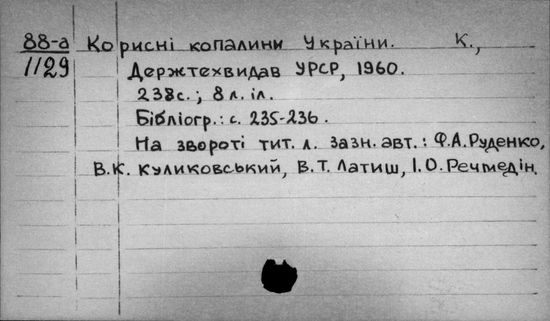 88-а Корисні копалини України. К.,
1129 Держтехвидав УРСР, 1960.
238с.; 8 л. іл.
Бібліогр.: с. 235-236.
На звороті тит. л. зазн. авт.: Ф.А.Руденко,
В.К. Куликовський, В.Т. Латиш, І.О.Речмедін.